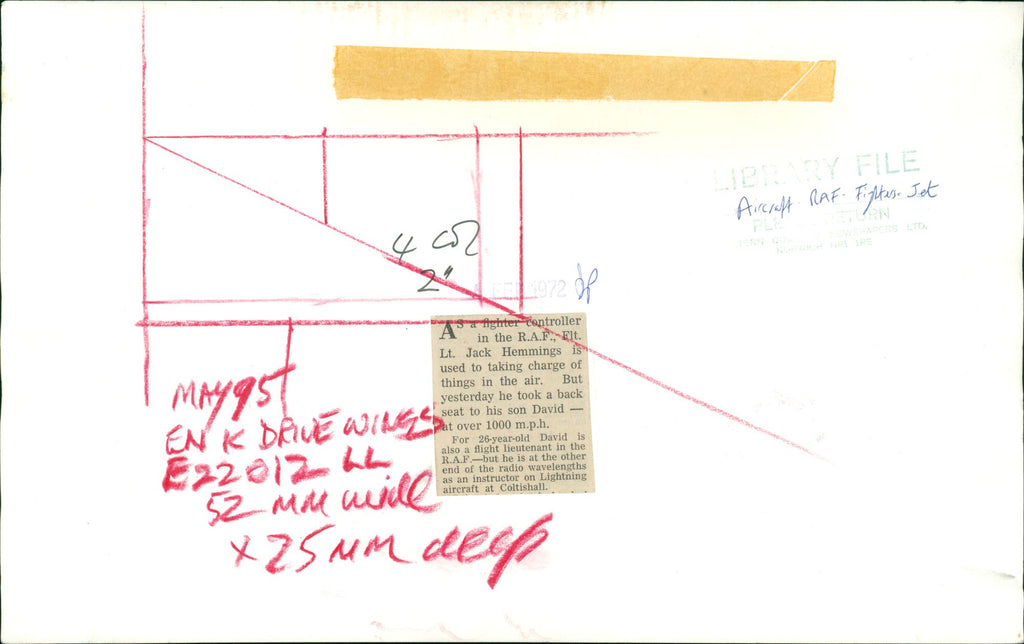 LIBRARY FILE
Aircraft. RAF. Fighter Jet
RETURN
NEWSPAPERS LTD.
NORWICH NR1 1RE
4 COL
2"
FEB 1972
AS a fighter controller
in the R.A.F., Flt.
Lt. Jack Hemmings is
used to taking charge of
things in the air. But
yesterday he took a back
seat to his son David —
at over 1000 m.p.h.
For 26-year-old David is
also a flight lieutenant in the
R.A.F.—but he is at the other
end of the radio wavelengths
as an instructor on Lightning
aircraft at Coltishall.
MAY 95
EN K DRIVE WINGS
E22012 LL
52 MM wide
x 25 MM deep